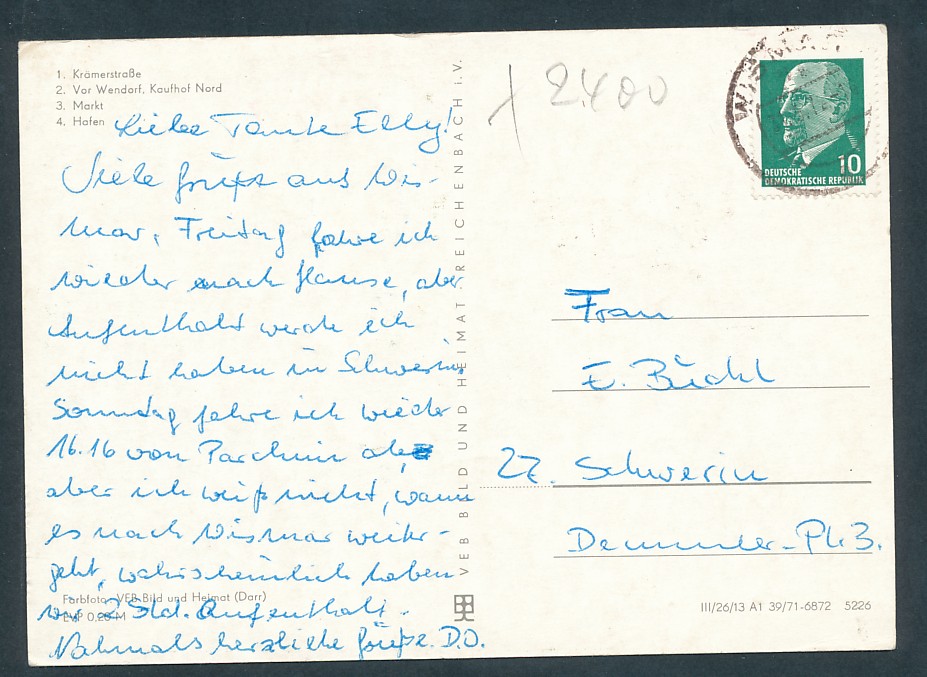 1. Krämerstraße
2. Vor Wendorf, Kaufhof Nord
3. Markt
4. Hafen
Liebe Tante Elly!
Viele Grüße aus Wis-
mar, Freitag fahre ich
wieder nach Hause, aber
Aufenthalt werde ich
nicht haben in Schwerin,
Sonntag fahre ich wieder
16.16 von Parchim ab,
aber ich weiß nicht, wann
es nach Wismar weiter-
geht, wahrscheinlich haben
wir 2 Std. Aufenthalt.
Nochmals herzliche Grüße. D.O.
Farbfoto: VEB Bild und Heimat (Darr)
EVP 0,20 M
VEB BILD UND HEIMAT REICHENBACH i.V.
2400
WISMAR
DEUTSCHE
DEMOKRATISCHE REPUBLIK
10
Frau
E. Büchl
27. Schwerin
Demmler-Pl. 3.
III/26/13 A1 39/71-6872 5226